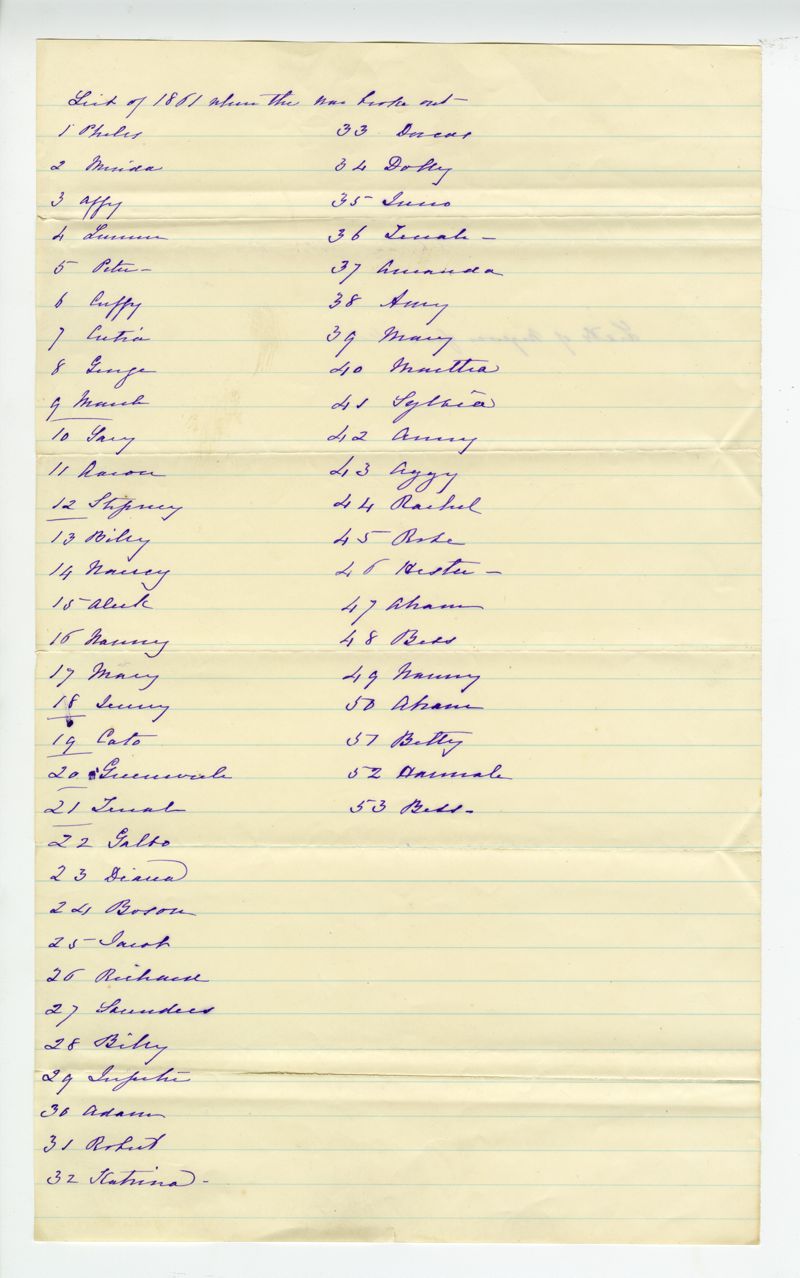 List of 1861 when the war broke out
1 Phelis
2 Minda
3 Affy
4
5 Peter
6 Cuffy
7
8 George
9 March
10 Gary
11 Aaron
12 Stepney
13 Billy
14 Nancy
15 Aleck
16 Nanny
17 Mary
18 Jenny
19 Cato
20 Greenwich
21 Tenah
22
23 Diana
24
25 Jacob
26 Richard
27 Saunders
28 Billy
29
30 Adam
31 Robert
32 Katrina
33 Dorcas
34 Dolly
35 Juno
36 Tenah
37 Amanda
38 Amy
39 Mary
40 Martha
41 Sylvia
42
43 Aggy
44 Rachel
45
46 Hester
47 Abram
48 Bess
49 Nanny
50 Abram
51 Betty
52 Hannah
53 Bess